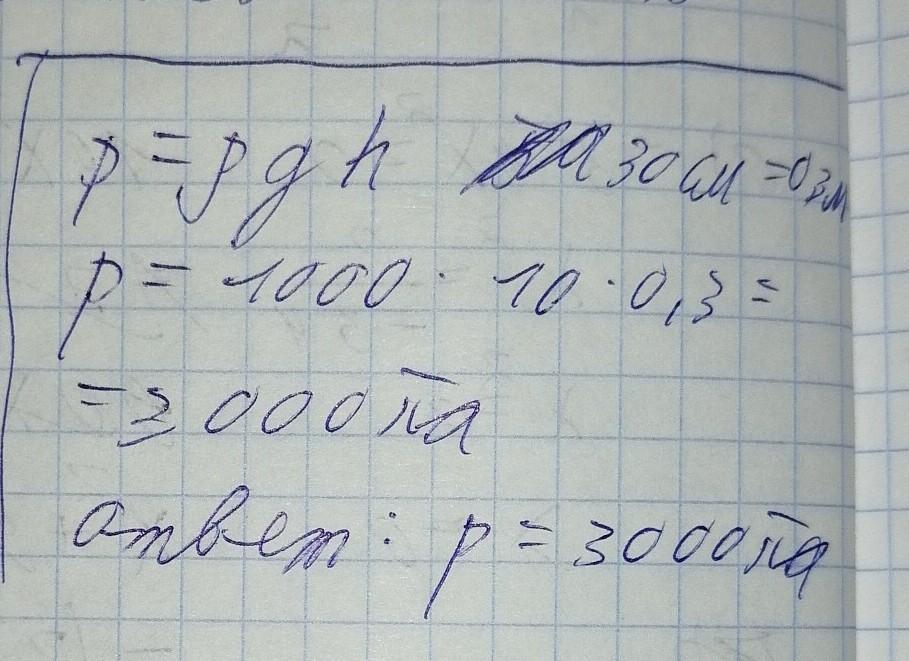 p = ρgh 30 см = 0,3м
p = 1000 · 10 · 0,3 =
= 3000 Па
ответ: p = 3000 Па